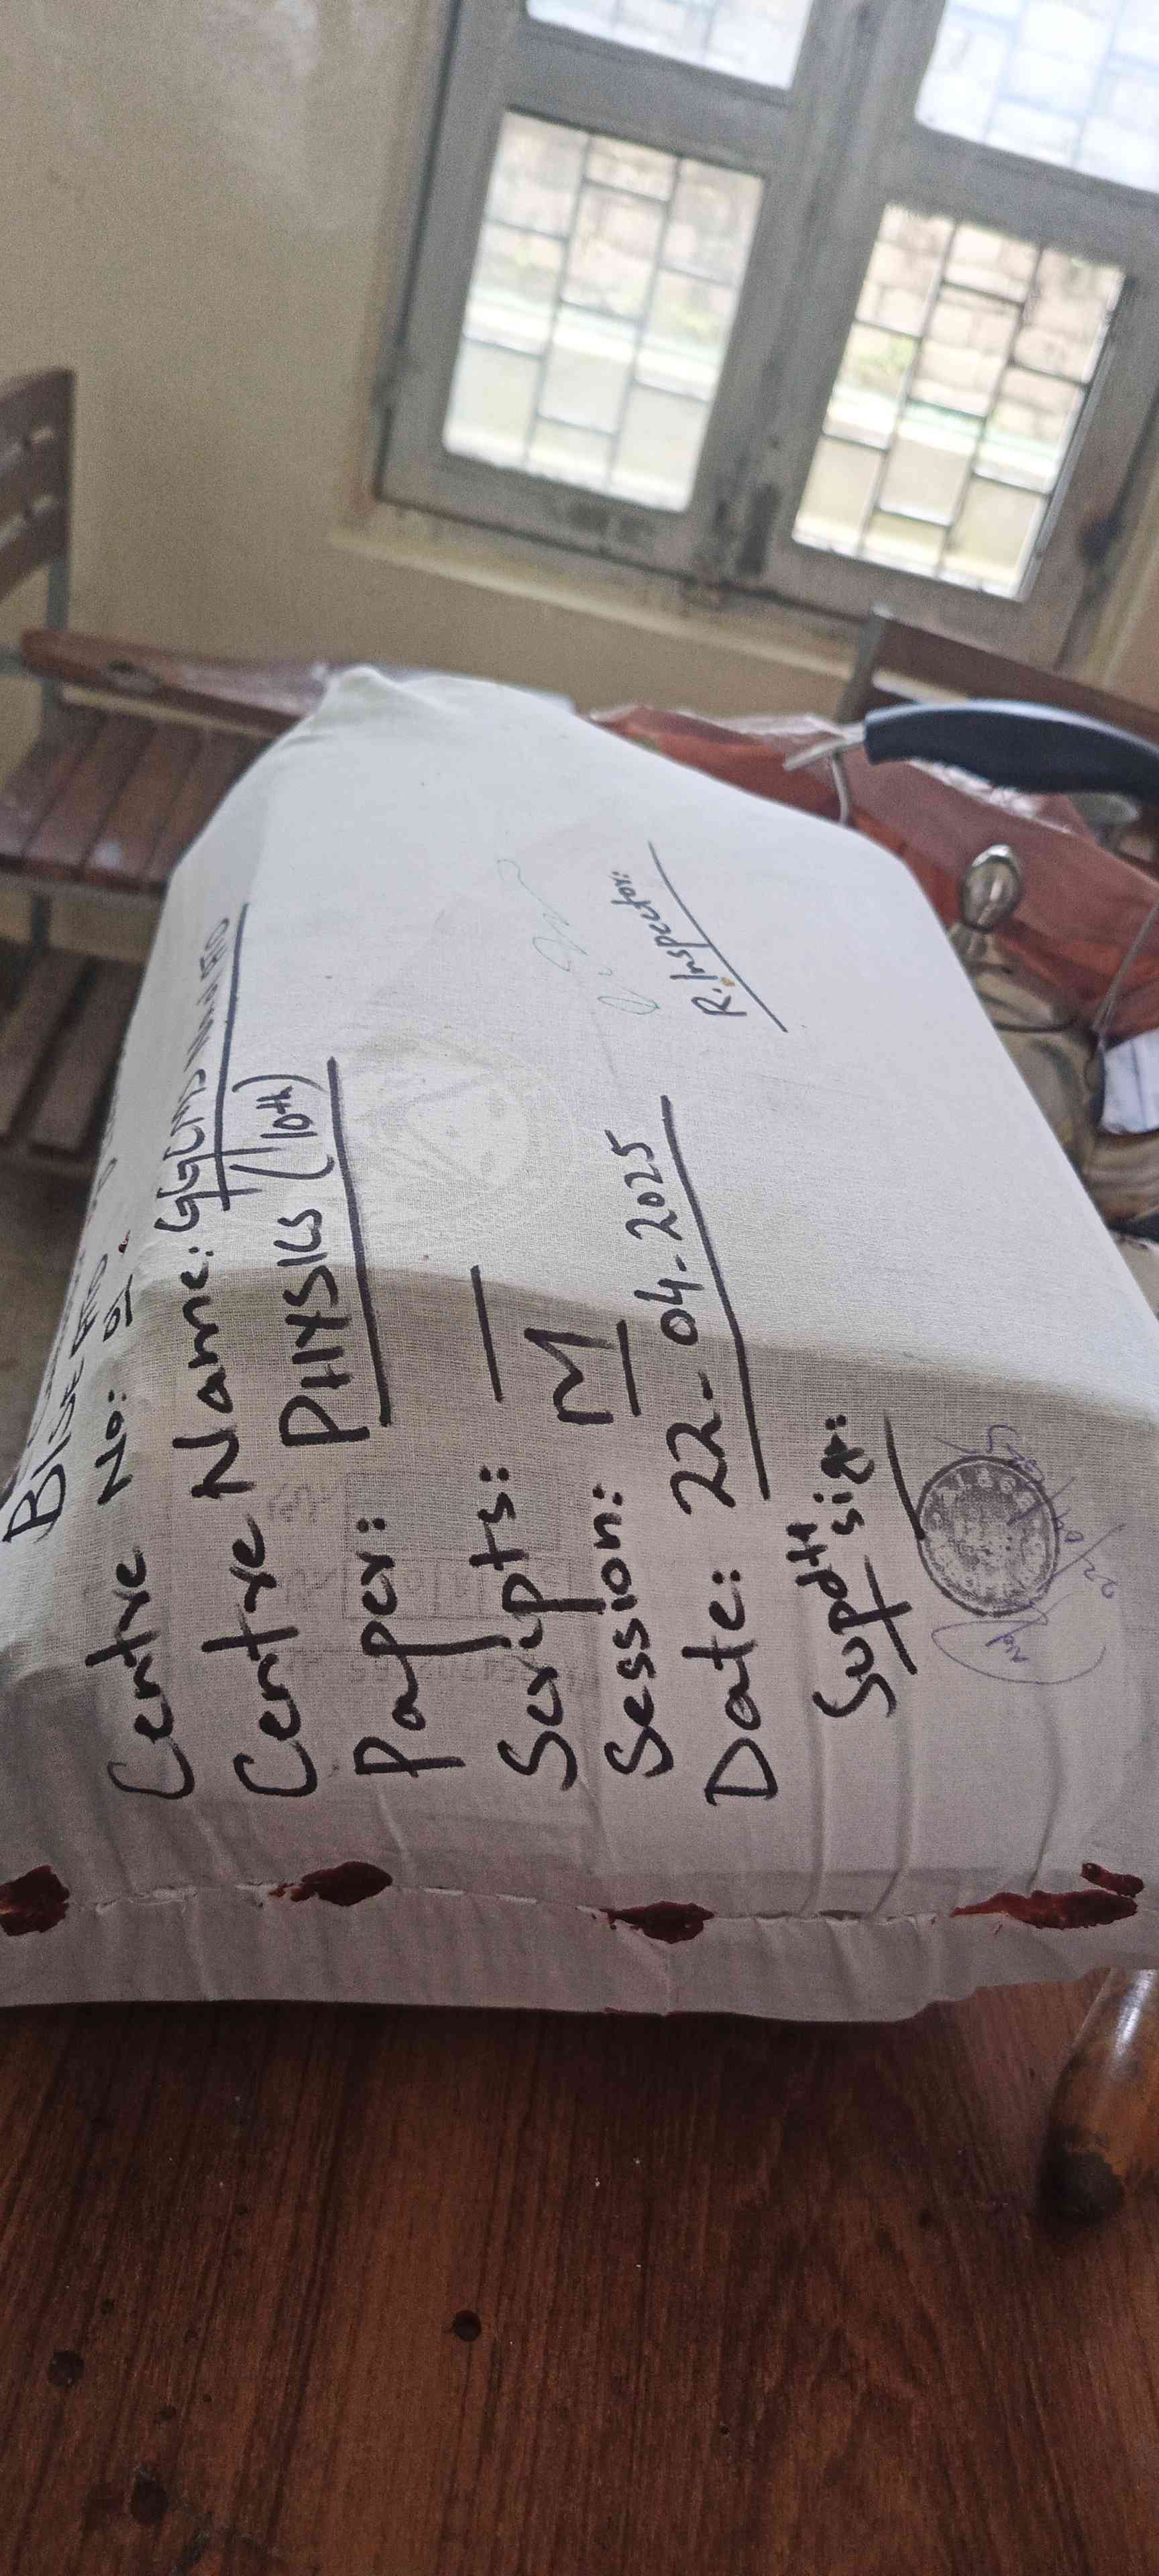 BISE
Centre No:
Centre Name: GGCMS
Paper: PHYSICS (10th)
Scripts: —
Session: M
Date: 22-04-2025
Supdtt sign:
R. Inspector: